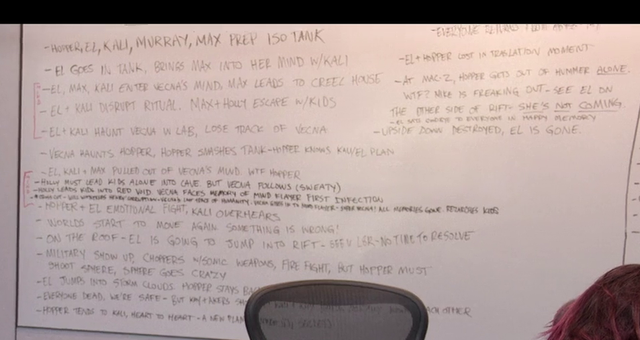 - HOPPER, EL, KALI, MURRAY, MAX PREP ISO TANK
- EL GOES IN TANK, BRINGS MAX INTO HER MIND W/KALI
- EL, MAX, KALI ENTER VECNA'S MIND. MAX LEADS TO CREEL HOUSE
- EL + KALI DISRUPT RITUAL. MAX+HOLLY ESCAPE W/KIDS
- EL + KALI HAUNT VECNA IN LAB, LOSE TRACK OF VECNA
- VECNA HAUNTS HOPPER, HOPPER SMASHES TANK - HOPPER KNOWS KALI/EL PLAN
- EL, KALI + MAX PULLED OUT OF VECNA'S MIND WTF HOPPER
- HOLLY MUST LEAD KIDS ALONE INTO CAVE BUT VECNA FOLLOWS (SWEATY)
- HOLLY LEADS KIDS INTO RED VOID VECNA FACES MEMORY OF MIND FLAYER FIRST INFECTION
- HOPPER + EL EMOTIONAL FIGHT, KALI OVERHEARS
- WORLDS START TO MOVE AGAIN SOMETHING IS WRONG!
- ON THE ROOF - EL IS GOING TO JUMP INTO RIFT - NO TIME TO RESOLVE
- MILITARY SHOW UP, CHOPPERS W/SONIC WEAPONS, FIRE FIGHT, BUT HOPPER MUST
SHOOT SPHERE, SPHERE GOES CRAZY
- EL JUMPS INTO STORM CLOUDS. HOPPER STAYS
- EVERYONE DEAD, WE'RE SAFE - BUT
EACH OTHER
- HOPPER TENDS TO KALI, HEART TO HEART - A NEW PLAN
EVERYONE
- EL + HOPPER LOST IN TRANSLATION MOMENT
- AT MAC-Z, HOPPER GETS OUT OF HUMMER ALONE.
WTF? MIKE IS FREAKING OUT - SEE EL ON
THE OTHER SIDE OF RIFT - SHE'S NOT COMING.
- EL TO EVERYONE IN HAPPY MEMORY
- UPSIDE DOWN DESTROYED, EL IS GONE.